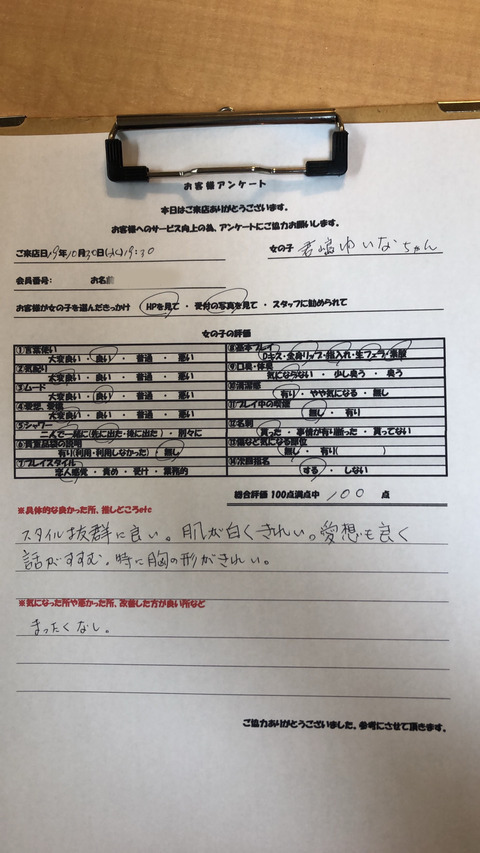 お客様アンケート
本日はご来店ありがとうございます。
お客様へのサービス向上の為、アンケートにご協力お願いします。
ご来店日 19年10月30日(水) 19:30 女の子 君嶋ゆいなちゃん
会員番号: お名前
お客様が女の子を選んだきっかけ HPを見て ・ 受付の写真を見て ・ スタッフに勧められて
女の子の評価
①言葉使い
大変良い ・ 良い ・ 普通 ・ 悪い
②気配り
大変良い ・ 良い ・ 普通 ・ 悪い
③ムード
大変良い ・ 良い ・ 普通 ・ 悪い
④愛想、笑顔
大変良い ・ 良い ・ 普通 ・ 悪い
⑤シャワー
二人で一緒に(先に出た・後に出た) ・ 別々に
⑥貴重品袋の説明
有り(利用・利用しなかった) ・ 無し
⑦プレイスタイル
恋人感覚 ・ 責め ・ 受け ・ 業務的
⑧基本プレイ
Dキス・全身リップ・指入れ・生フェラ・素股
⑨口臭・体臭
気にならない ・ 少し臭う ・ 臭う
⑩清潔感
有り ・ やや気になる ・ 無し
⑪プレイ中の喫煙
無し ・ 有り
⑫名刺
貰った ・ 事情が有り断った ・ 貰ってない
⑬傷など気になる部位
無し ・ 有り( )
⑭次回指名
する ・ しない
総合評価 100点満点中 100 点
※具体的な良かった所、推しどころetc
スタイル抜群に良い。肌が白くきれい。愛想も良く
話がすすむ。特に胸の形がきれい。
※気になった所や悪かった所、改善した方が良い所など
まったくなし。
ご協力ありがとうございました。参考にさせて頂きます。